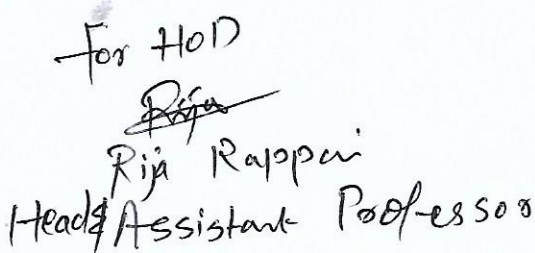 For HOD
Rija
Rija Rappai
Head & Assistant Professor